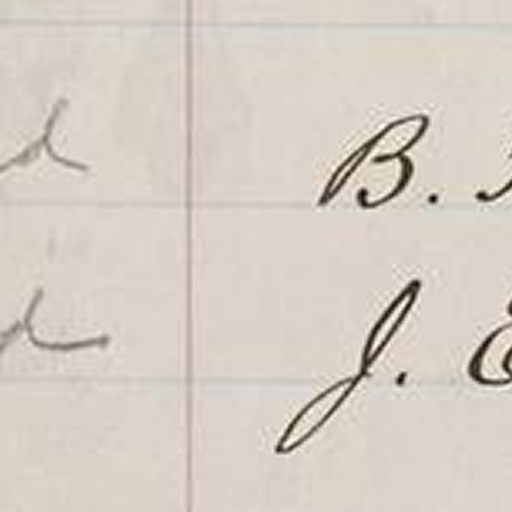 d B.
d J. E